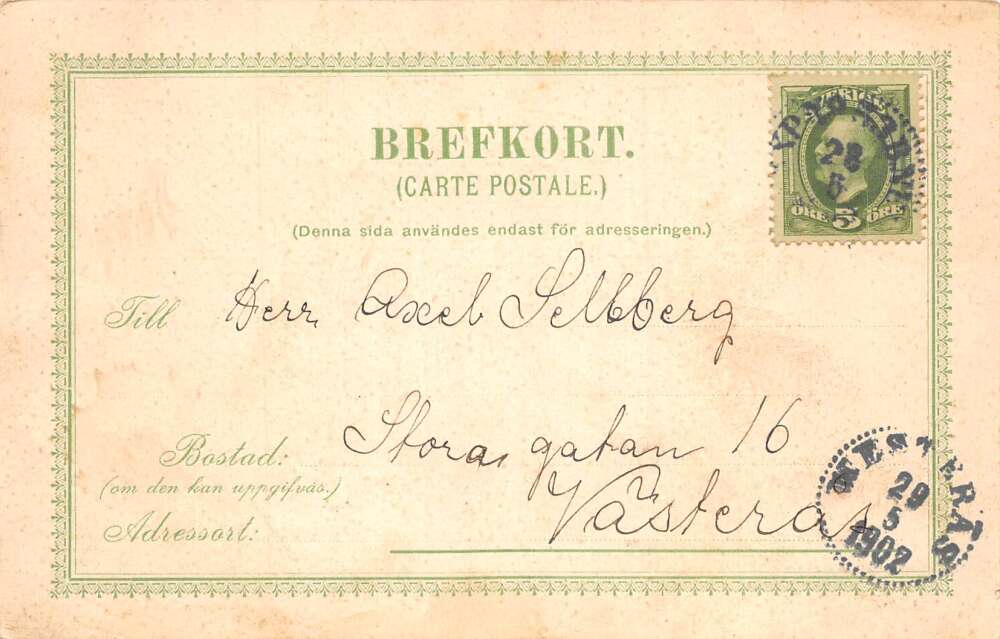 BREFKORT.
(CARTE POSTALE.)
(Denna sida användes endast för adresseringen.)
SVERIGE
28
5
ÖRE 5 ÖRE
Till Herr Axel Sellberg
Bostad: Stora gatan 16
(om den kan uppgifvas.)
Adressort: Västerås
WESTERÅS
29
5
1902